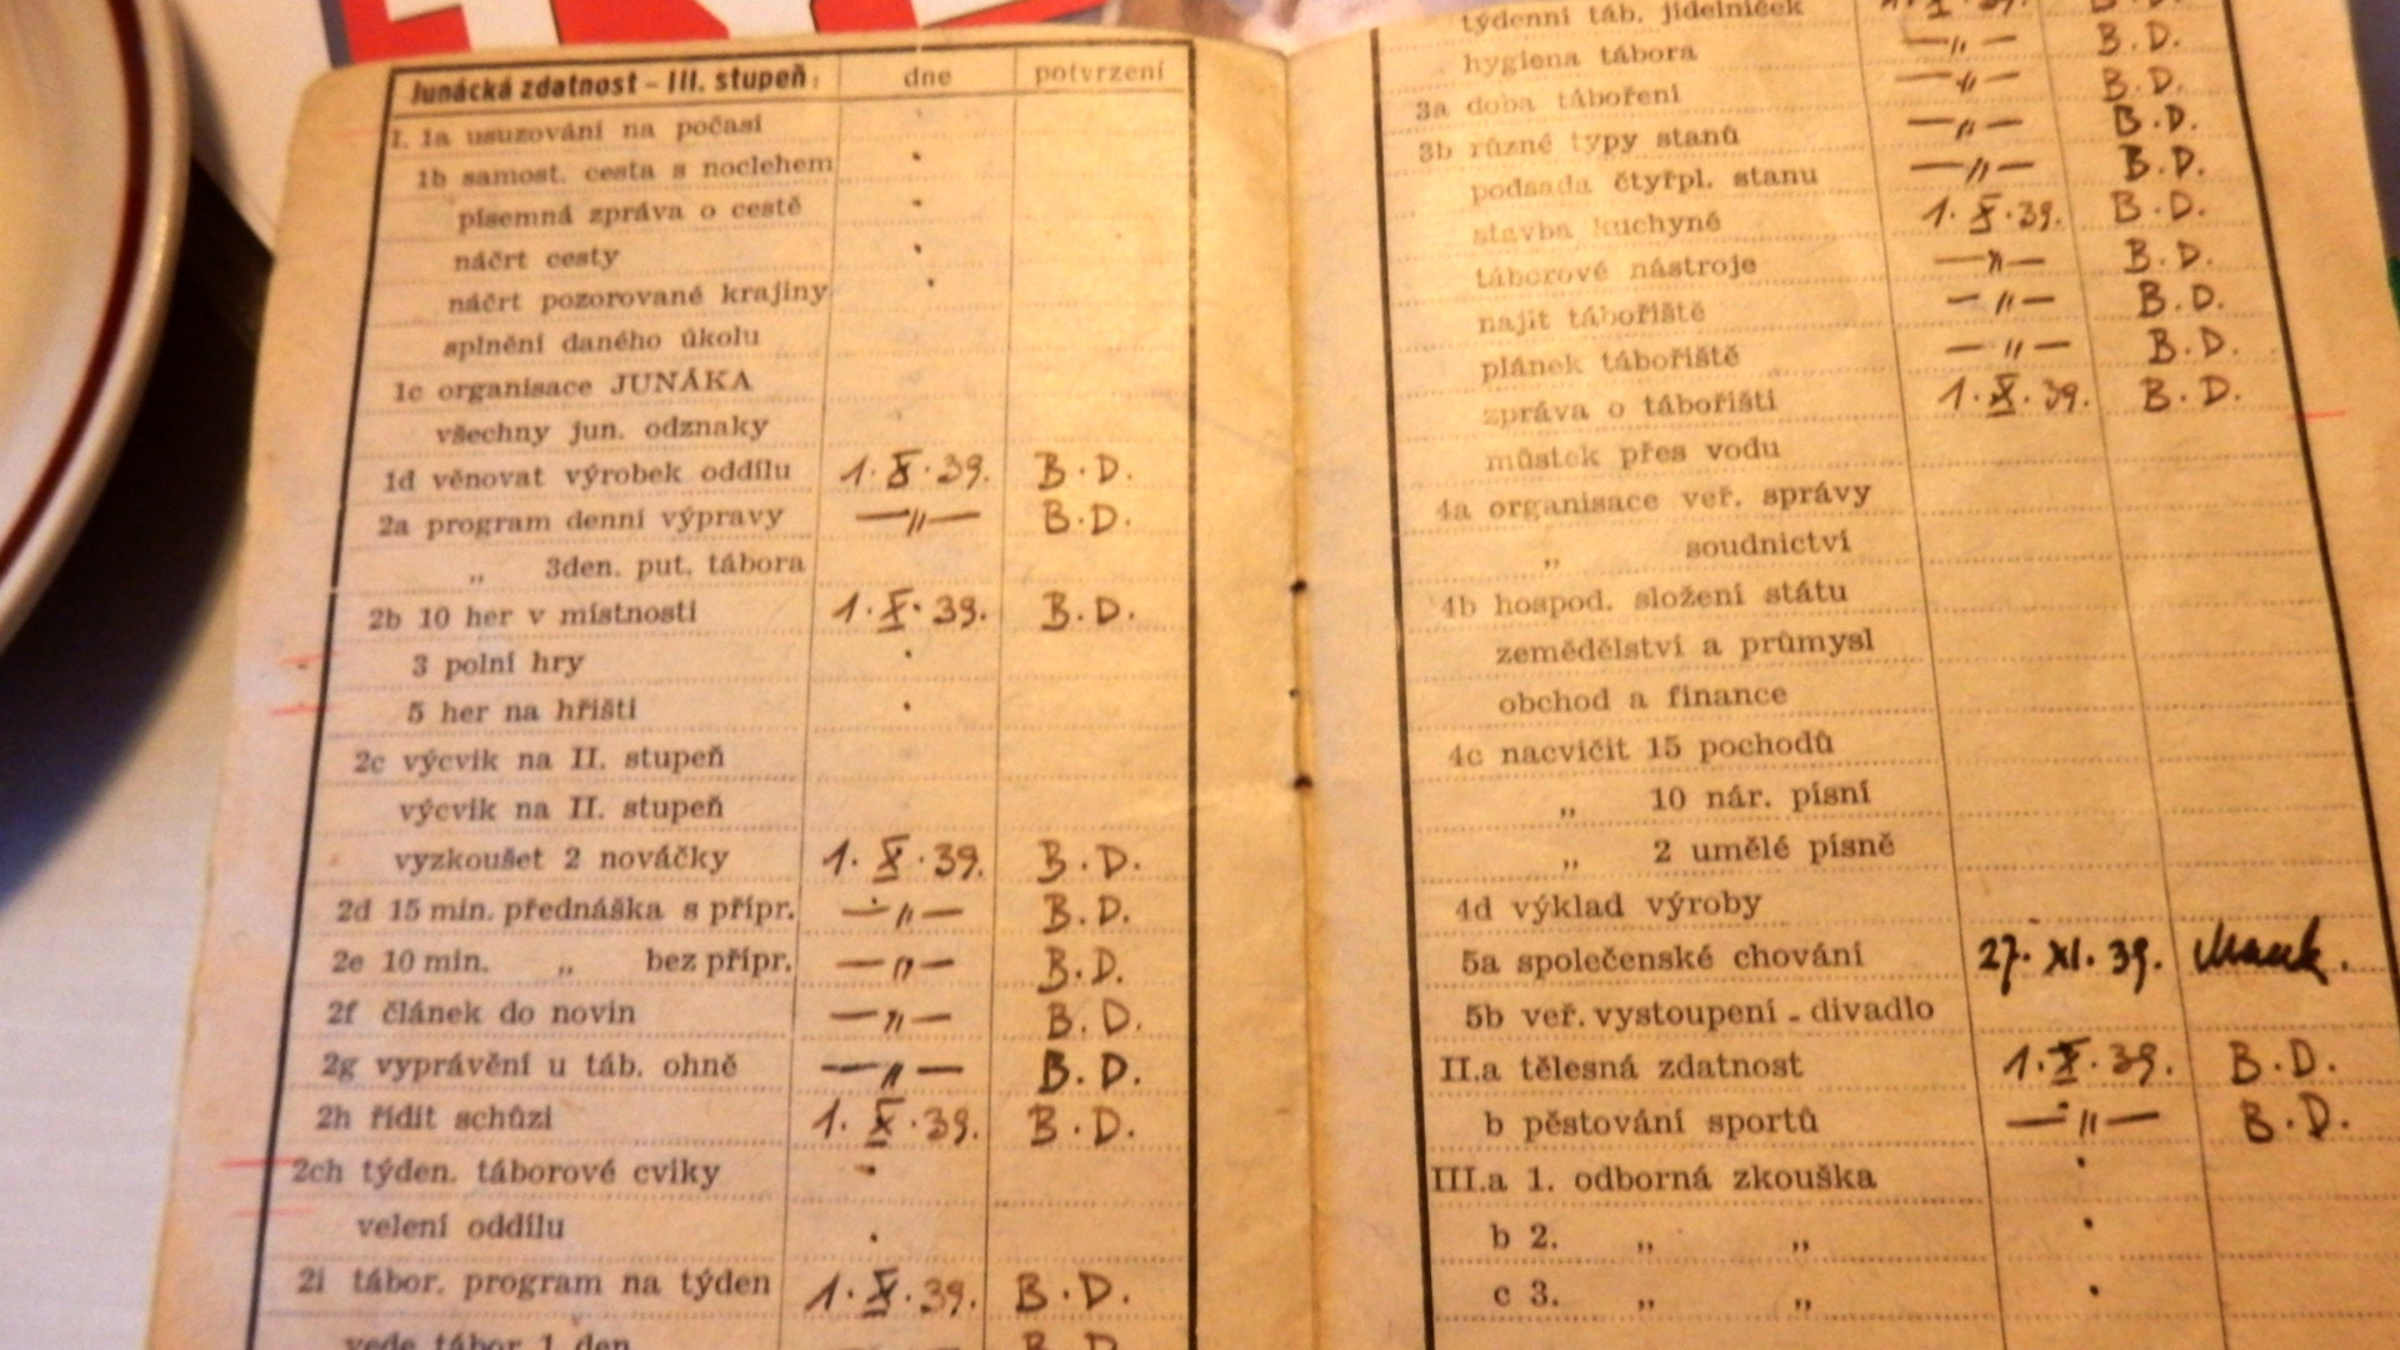 Junácká zdatnost – III. stupeň: dne potvrzení
I. 1a usuzování na počasí
1b samost. cesta s noclehem
písemná zpráva o cestě
náčrt cesty
náčrt pozorované krajiny
splnění daného úkolu
1c organisace JUNÁKA
všechny jun. odznaky
1d věnovat výrobek oddílu 1. X. 39. B. D.
2a program denní výpravy —„— B. D.
„ 3den. put. tábora
2b 10 her v místnosti 1. X. 39. B. D.
3 polní hry
5 her na hřišti
2c výcvik na II. stupeň
výcvik na II. stupeň
vyzkoušet 2 nováčky 1. X. 39. B. D.
2d 15 min. přednáška s přípr. —„— B. D.
2e 10 min. „ bez přípr. —„— B. D.
2f článek do novin —„— B. D.
2g vyprávění u táb. ohně —„— B. D.
2h řídit schůzi 1. X. 39. B. D.
2ch týden. táborové cviky
velení oddílu
2i tábor. program na týden 1. X. 39. B. D.
vede tábor 1 den B. D.
týdenní táb. jídelníček 1. X. 39. B. D.
hygiena tábora —„— B. D.
3a doba táboření —„— B. D.
3b různé typy stanů —„— B. D.
podsada čtyřpl. stanu —„— B. D.
stavba kuchyně 1. X. 39. B. D.
táborové nástroje —„— B. D.
najít tábořiště —„— B. D.
plánek tábořiště —„— B. D.
zpráva o tábořišti 1. X. 39. B. D.
můstek přes vodu
4a organisace veř. správy
„ soudnictví
4b hospod. složení státu
zemědělství a průmysl
obchod a finance
4c nacvičit 15 pochodů
„ 10 nár. písní
„ 2 umělé písně
4d výklad výroby
5a společenské chování 27. XI. 39.
5b veř. vystoupení - divadlo
II.a tělesná zdatnost 1. X. 39. B. D.
b pěstování sportů —„— B. D.
III.a 1. odborná zkouška
b 2. „ „
c 3. „ „